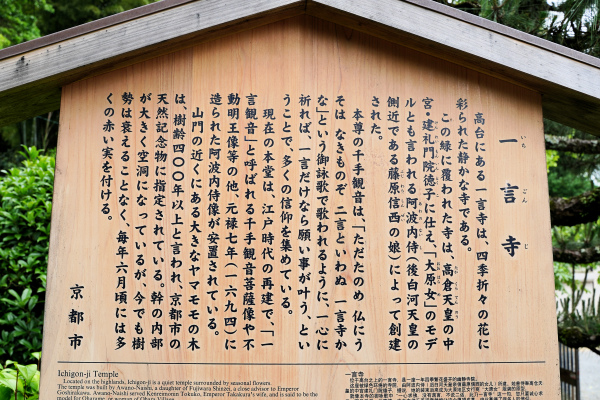 一言寺
いちごんじ
高台にある一言寺は、四季折々の花に
彩られた静かな寺である。
この緑に覆われた寺は、高倉天皇の中
宮・建礼門院徳子に仕え、「大原女」のモデ
ルとも言われる阿波内侍(後白河天皇の
側近である藤原信西の娘)によって創建
された。
本尊の千手観音は、「ただたのめ 仏にう
そは なきものぞ 二言といわぬ 一言寺か
な」という御詠歌で歌われるように、一心に
祈れば、一言だけなら願い事が叶う、とい
うことで、多くの信仰を集めている。
現在の本堂は、江戸時代の再建で、「一
言観音」と呼ばれる千手観音菩薩像や不
動明王像等の他、元禄七年(一六九四)に
造られた阿波内侍像が安置されている。
山門の近くにある大きなヤマモモの木
は、樹齢四〇〇年以上と言われ、京都市の
天然記念物に指定されている。幹の内部
が大きく空洞になっているが、今でも樹
勢は衰えることなく、毎年六月頃には多
くの赤い実を付ける。
京都市
Ichigon-ji Temple
Located on the highlands, Ichigon-ji is a quiet temple surrounded by seasonal flowers.
The temple was built by Awano-Naishi, a daughter of Fujiwara Shinzei, a close advisor to Emperor
Goshirakawa. Awano-Naishi served Kenreimonin Tokuko, Emperor Takakura's wife, and is said to be the
一言寺